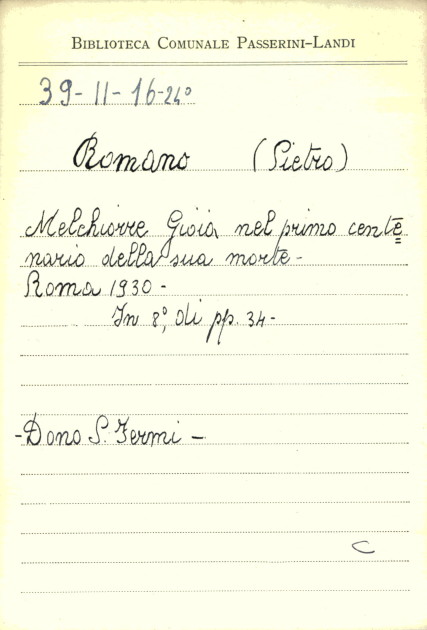 BIBLIOTECA COMUNALE PASSERINI-LANDI
39-II-16-24°
Romano (Pietro)
Melchiorre Gioia, nel primo cente=
nario della sua morte-
Roma 1930-
In 8°, di pp. 34-
-Dono S. Fermi-
C